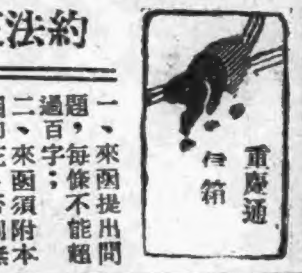 重慶通
信箱
約法
一、來函提出問
題，每條不能超
過百字；
二、來函須附本